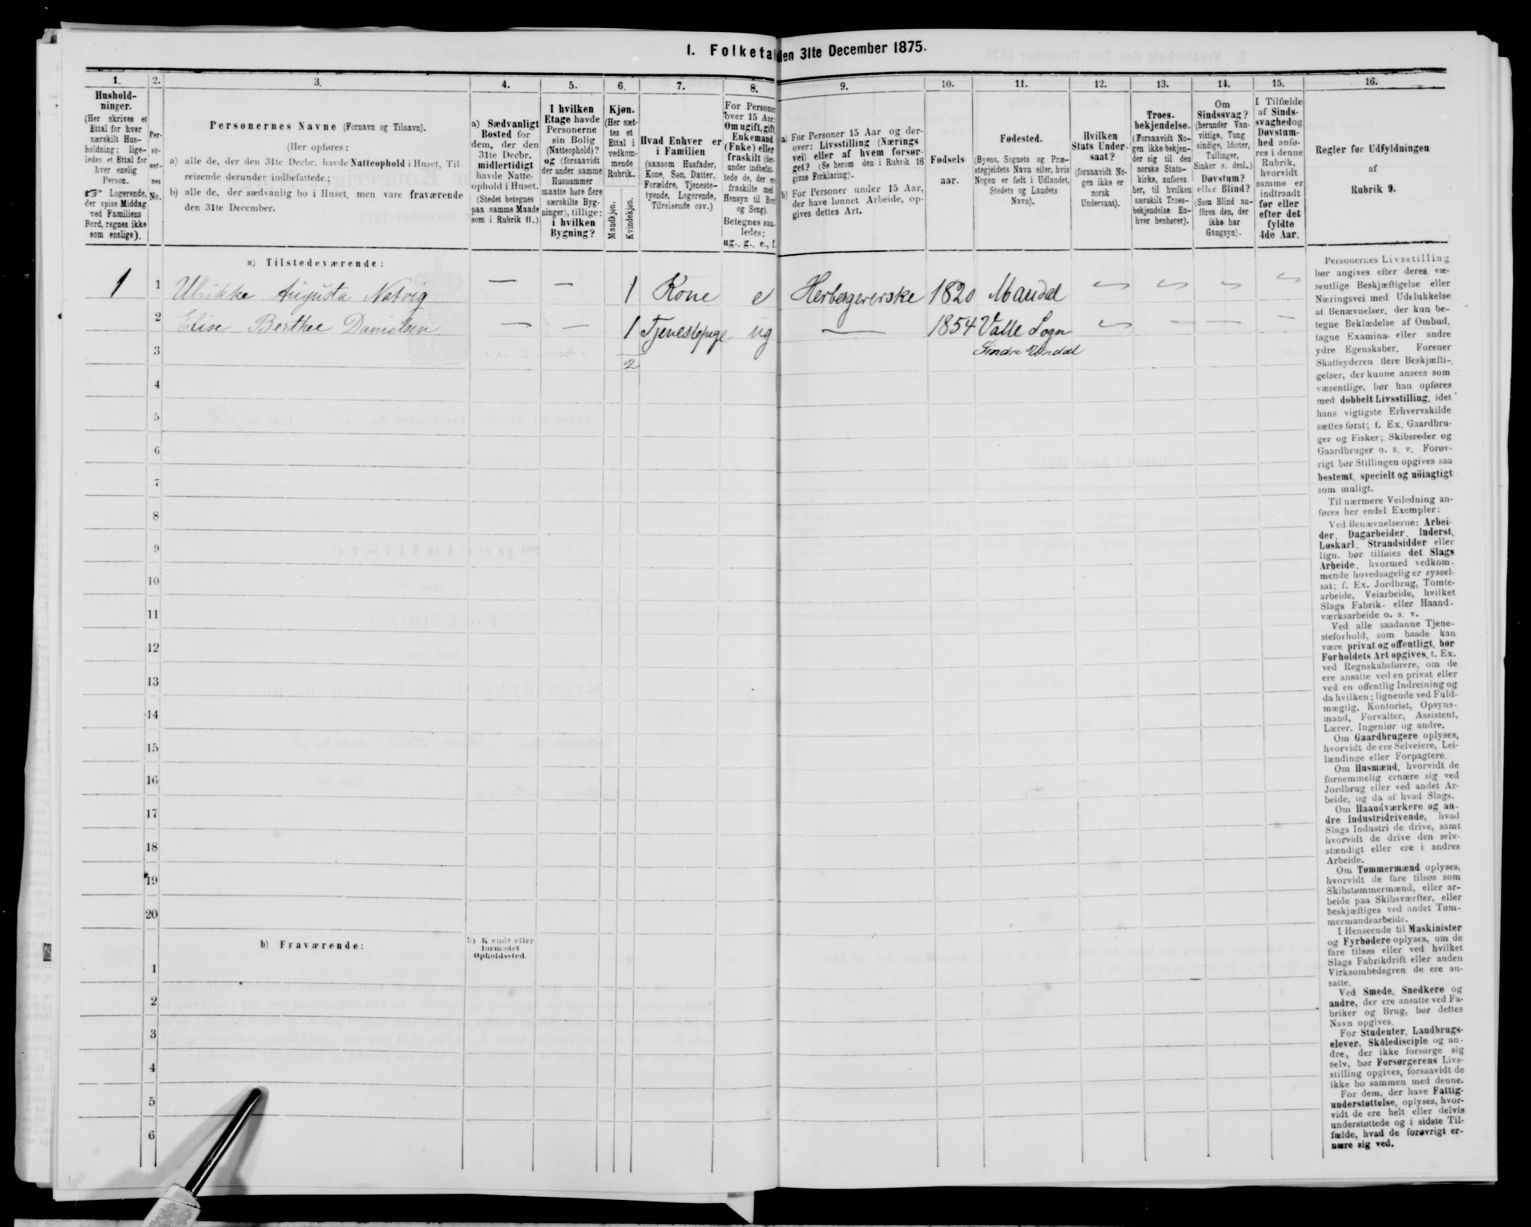 I. Folketal den 31te December 1875.
1.
Hushold-
ninger.
(Her skrives et
Ettal for hver
særskilt Hus-
holdning; lige-
ledes et Ettal for
hver enslig
Person.
☞ Logerende,
der spise Middag
ved Familiens
Bord, regnes ikke
som enslige).
2.
Per-
so-
ner-
nes
No.
3.
Personernes Navne (Fornavn og Tilnavn).
(Her opføres:
a) alle de, der den 31te Decbr. havde Natteophold i Huset, Til-
reisende derunder indbefattede;
b) alle de, der sædvanlig bo i Huset, men vare fraværende
den 31te December.
4.
a) Sædvanligt
Bosted for
dem, der den
31te Decbr.
midlertidigt
havde Natte-
ophold i Huset.
(Stedet betegnes
paa samme Maade
som i Rubrik 11.)
5.
I hvilken
Etage havde
Personerne
sin Bolig
(Natteophold)?
og (forsaavidt
der under samme
Husnummer
maatte høre flere
særskilte Byg-
ninger), tillige:
i hvilken
Bygning?
6.
Kjøn.
(Her sæt-
tes et
Ettal i
vedkom-
mende
Rubrik.
Mandkjøn.
Kvindekjøn.
7.
Hvad Enhver er
i Familien
(saasom Husfader,
Kone, Søn, Datter,
Forældre, Tjeneste-
tyende, Logerende,
Tilreisende osv.)
8.
For Personer
over 15 Aar:
Om ugift, gift,
Enkemand
(Enke) eller
fraskilt
Betegnes saa-
ledes:
ug., g., e., f.
9.
a) For Personer 15 Aar og der-
over: Livsstilling (Nærings-
vei) eller af hvem forsør-
get? (Se herom den i Rubrik 16
givne Forklaring).
b) For Personer under 15 Aar,
der have lønnet Arbeide, op-
gives dettes Art.
10.
Fødsels-
aar.
11.
Fødested.
(Byens, Sognets og Præ-
stegjeldets Navn eller, hvis
Nogen er født i Udlandet,
Stedets og Landets
Navn).
12.
Hvilken
Stats Under-
saat?
(forsaavidt No-
gen ikke er
norsk
Undersaat).
13.
Troes-
bekjendelse.
(Forsaavidt No-
gen ikke bekjen-
der sig til den
norske Stats-
kirke, anføres
her, til hvilken
særskilt Troes-
bekjendelse En-
hver henhører).
14.
Om
Sindssvag?
(herunder Van-
vittige, Tung-
sindige, Idioter,
Tullinger,
Sinker o. desl.)
Døvstum?
eller Blind?
(Som Blind an-
føres den, der
ikke har
Gangsyn).
15.
I Tilfælde
af Sinds-
svaghed og
Døvstum-
hed anfø-
res i denne
Rubrik,
hvorvidt
samme er
indtraadt
før eller
efter det
fyldte
4de Aar.
16.
Regler for Udfyldningen
af
Rubrik 9.
a) Tilstedeværende:
1 1 Ulrikke Augusta Natvig — — 1 Kone e Herbergererske 1820 Mandal
2 Elise Berthee Danielsen — — 1 Tjenestepige ug — 1854 Valle Sogn
Søndre Undal
3 2
4
5
6
7
8
9
10
11
12
13
14
15
16
17
18
19
20
b) Fraværende:
b) Kjendt eller
formodet
Opholdssted.
1
2
3
4
5
6
Personernes Livsstilling
bør angives efter deres væ-
sentlige Beskjæftigelse eller
Næringsvei med Udelukkelse
af Benævnelser, der kun be-
tegne Beklædelse af Ombud,
tagne Examina eller andre
ydre Egenskaber. Forener
Skatteyderen flere Beskjæfti-
gelser, der kunne ansees som
væsentlige, bør han opføres
med dobbelt Livsstilling, idet
hans vigtigste Erhvervskilde
sættes først; f. Ex. Gaardbru-
ger og Fisker; Skibsreder og
Gaardbruger o. s. v. Forøv-
rigt bør Stillingen opgives saa
bestemt, specielt og nöiagtigt
som muligt.
Til nærmere Veiledning an-
føres her endel Exempler:
Ved Benævnelserne: Arbei-
der, Dagarbeider, Inderst,
Løskarl, Strandsidder eller
lign. bør tilføies det Slags
Arbeide, hvormed vedkom-
mende hovedsagelig er syssel-
sat; f. Ex. Jordbrug, Tomte-
arbeide, Veiarbeide, hvilket
Slags Fabrik- eller Haand-
værksarbeide o. s. v.
Ved alle saadanne Tjene-
steforhold, som baade kan
være privat og offentligt, bør
Forholdets Art opgives, f. Ex.
ved Regnskabsførere, om de
ere ansatte ved en privat eller
ved en offentlig Indretning og
da hvilken; lignende ved Fuld-
mægtig, Kontorist, Opsyns-
mand, Forvalter, Assistent,
Lærer, Ingeniør og andre.
Om Gaardbrugere oplyses,
hvorvidt de ere Selveiere, Lei-
lændinge eller Forpagtere.
Om Husmænd, hvorvidt de
fornemmelig ernære sig ved
Jordbrug eller ved andet Ar-
beide, og da af hvad Slags.
Om Haandværkere og an-
dre Industridrivende, hvad
Slags Industri de drive, samt
hvorvidt de drive den selv-
stændigt eller ere i andres
Arbeide.
Om Tømmermænd oplyses,
hvorvidt de fare tilsøs som
Skibstømmermænd, eller ar-
beide paa Skibsværfter, eller
beskjæftiges ved andet Tøm-
mermandsarbeide.
I Henseende til Maskinister
og Fyrbødere oplyses, om de
fare tilsøs eller ved hvilket
Slags Fabrikdrift eller anden
Virksomhedsgren de ere an-
satte.
Ved Smede, Snedkere og
andre, der ere ansatte ved Fa-
briker og Brug, bør dettes
Navn opgives.
For Studenter, Landbrugs-
elever, Skoledisciple og an-
dre, der ikke forsørge sig
selv, bør Forsørgerens Livs-
stilling opgives, forsaavidt de
ikke bo sammen med denne.
For dem, der have Fattig-
understøttelse, oplyses, hvor-
vidt de ere helt eller delvis
understøttede og i sidste Til-
fælde, hvad de forøvrigt er-
nære sig ved.